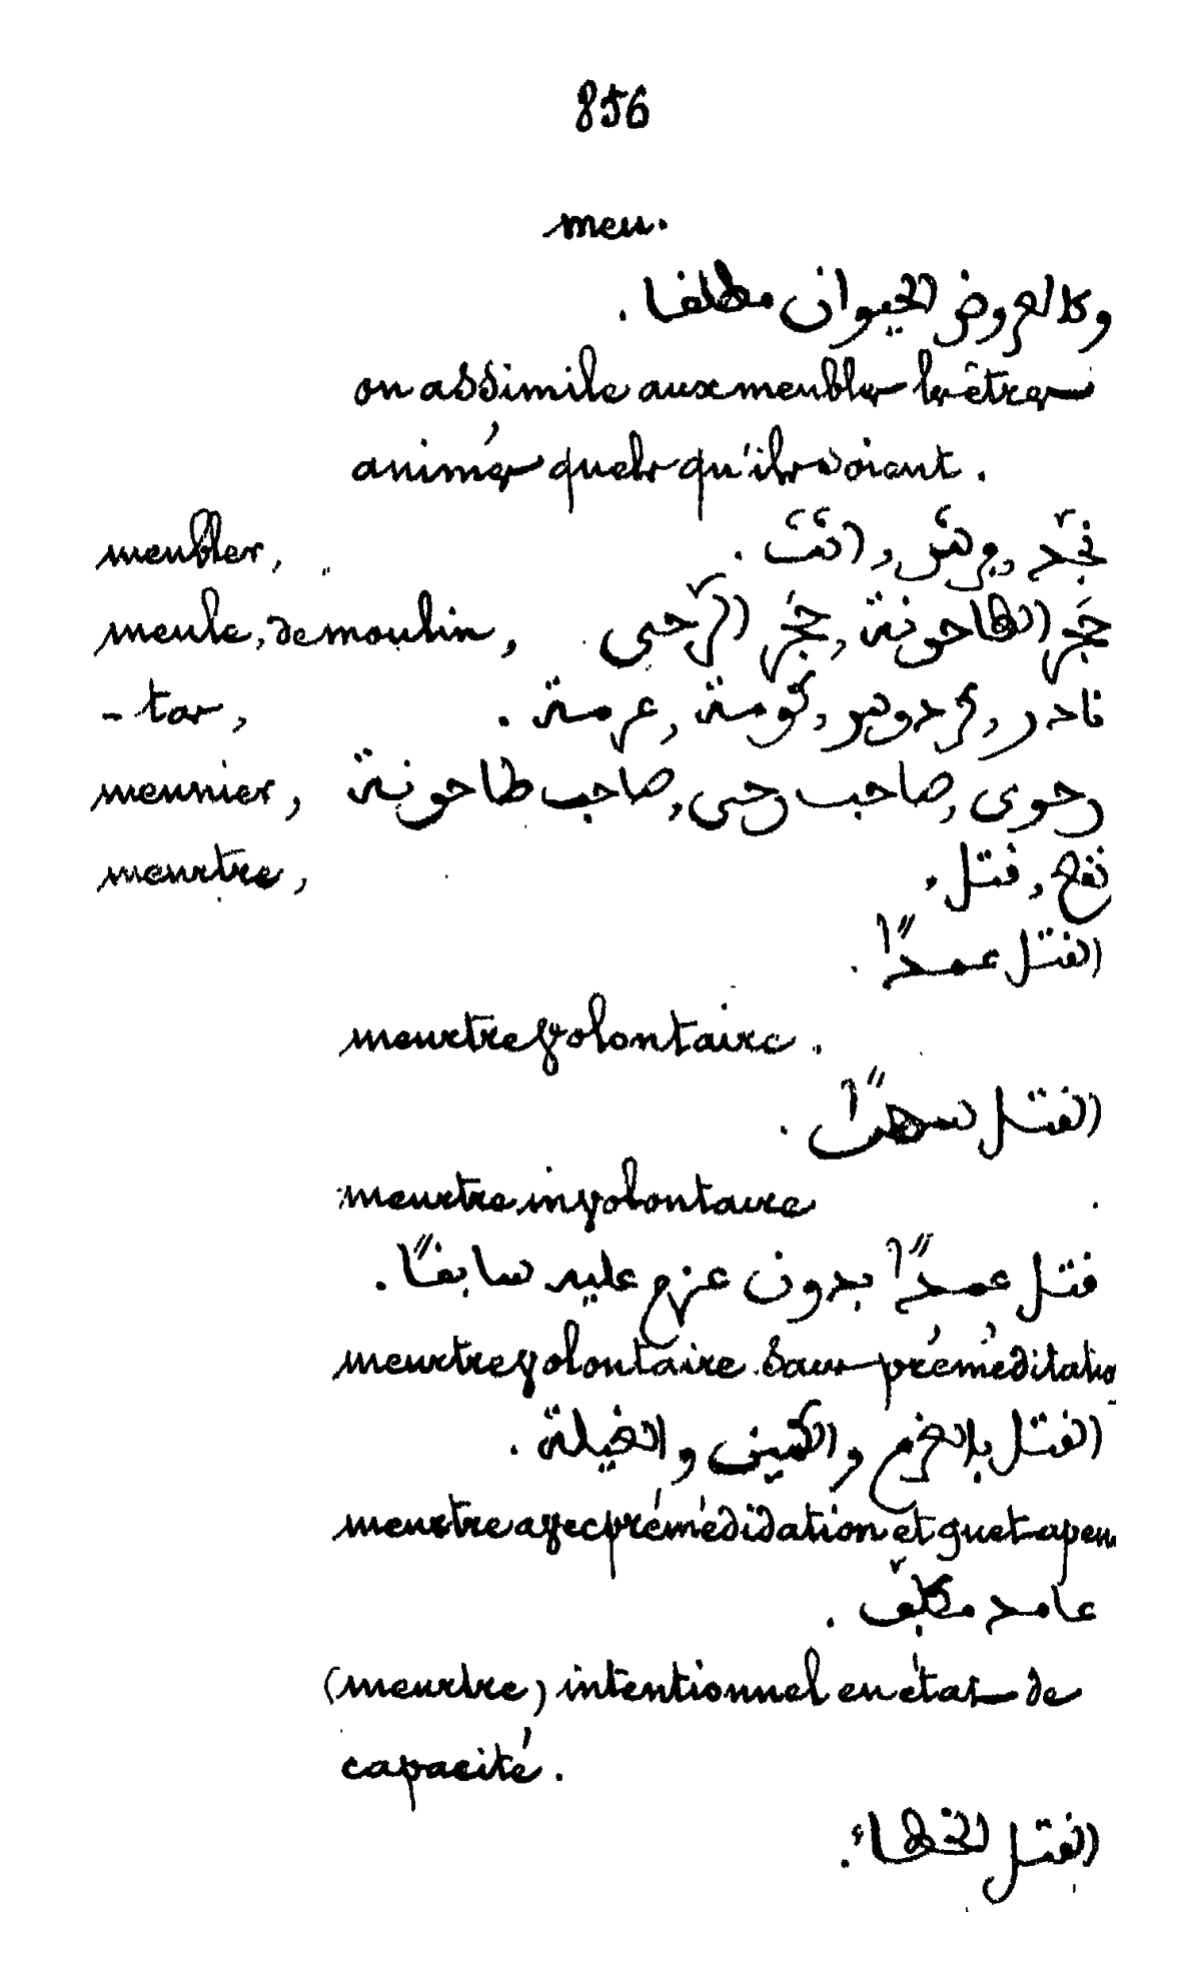 856
meu.
وكالعروض الحيوان مطلفا .
on assimile aux meubles les êtres
animés quels qu'ils soient .
meubler, نجّد, فرش, اثّث .
meule, de moulin, حَجر الطاحونة, حَجر الرّحى
- tas, فادر, كردوس, كومة, عرمة .
meunier, رحوى, صاحب رحى, صاحب طاحونة
meurtre, فتل .
الفتل عمدًا .
meurtre volontaire .
الفتل سهوًا .
meurtre involontaire
فتل عمدًا بدون عزم عليه سابفًا .
meurtre volontaire sans préméditatio
الفتل بالعزم والكمين والغيلة .
meurtre avec prémédidation et guet apen
عامد مكلّف .
(meurtre) intentionnel en état de
capacité .
الفتل الخطاء .